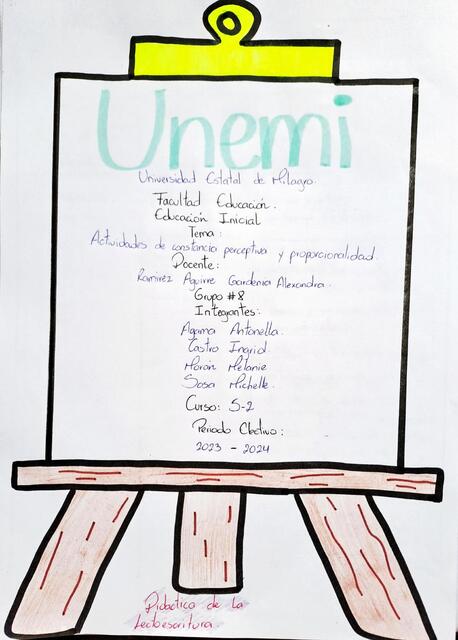 Unemi
Universidad Estatal de Milagro.
Facultad Educación.
Educación Inicial
Tema:
Actividades de constancia perceptiva y proporcionalidad.
Docente:
Ramirez Aguirre Gardenia Alexandra.
Grupo #8
Integrantes:
Agama Antonella.
Castro Ingrid.
Morán Melanie
Sosa Michelle.
Curso: S-2
Periodo Electivo:
2023 - 2024
Didactica de la
Lectoescritura.